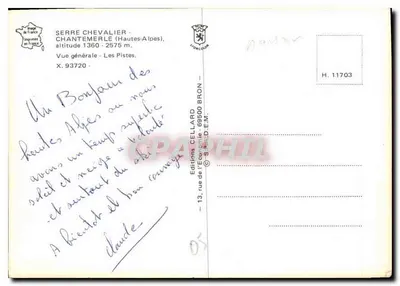 SERRE CHEVALIER -
CHANTEMERLE (Hautes-Alpes),
altitude 1360 - 2575 m.
Vue générale - Les Pistes.
X. 93720 -
Un Bonjour des
hautes Alpes où nous
avons un temps superbe
soleil et neige à volonté
et autant de ski
A bientôt et bon courage
Claude
Editions CELLARD
— 13, rue de l'Economie - 69500 BRON —
H. 11703
05
CARTHAPHIL